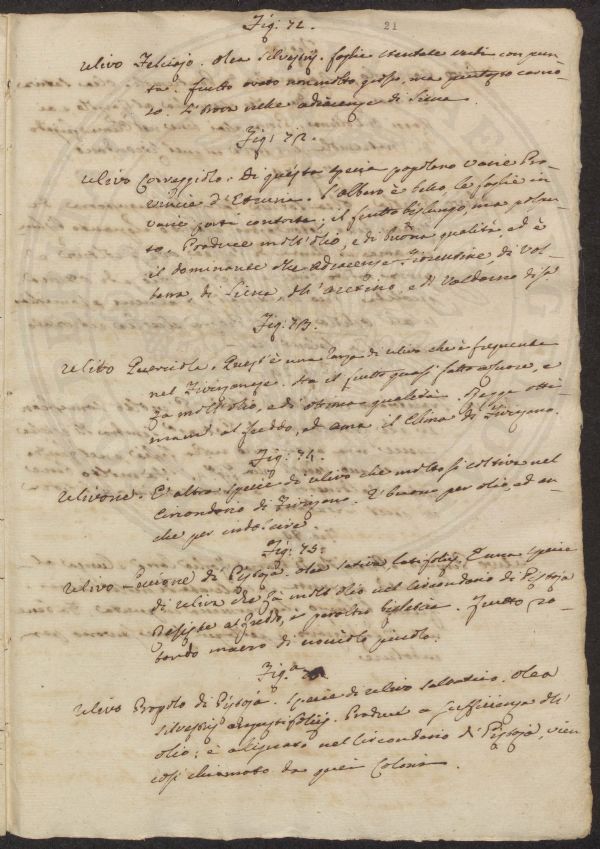 Fig: 71. 21
Ulivo Felciajo. Olea Silvestris. foglie verdi con pun-
ta. frutto ovato non molto grosso, ma
so. Si trova nelle adiacenze di Siena
Fig: 72.
Ulivo Correggiolo. Di questa specie popolano varie Pro-
vincie d'Etruria. L'albero è bello, le foglie in
varie parti contorte; il frutto bislungo, ma polpu-
to. Produce molt'olio, e di buona qualità, ed è
il dominante adiacenze Fiorentine, di Vol-
terra, di Siena, dell'Aretino, e di Valdarno di
Fig: 73.
Ulivo Querciolo. Quest'è una razza di ulivo che è frequente
nel Fivizanese. Ha il frutto quasi fatto a cuore, e
fa molt'olio, e di ottima qualità. Regge otti-
mam: al freddo, ed ama il Clima di Fivizano.
Fig: 74.
Ulivone. E' altra specie di ulivo che molto si coltiva nel
Circondario di Fivizano. E' buono per olio, ed an-
che per indolcire.
Fig: 75.
Ulivo di Pistoja. Olea sativa latifolia. E' una specie
di uliva che fa molt'olio nel Circondario di Pistoja
Resiste al freddo, è peraltro. Frutto ro-
tondo nocciolo piccolo.
Fig:
Ulivo di Pistoja. Specie di ulivo salvatico. Olea
silvestris angustifolia. Produce a sufficienza dell'
olio; è allignato nel Circondario di Pistoja, vien
così chiamato da quei Coloni.